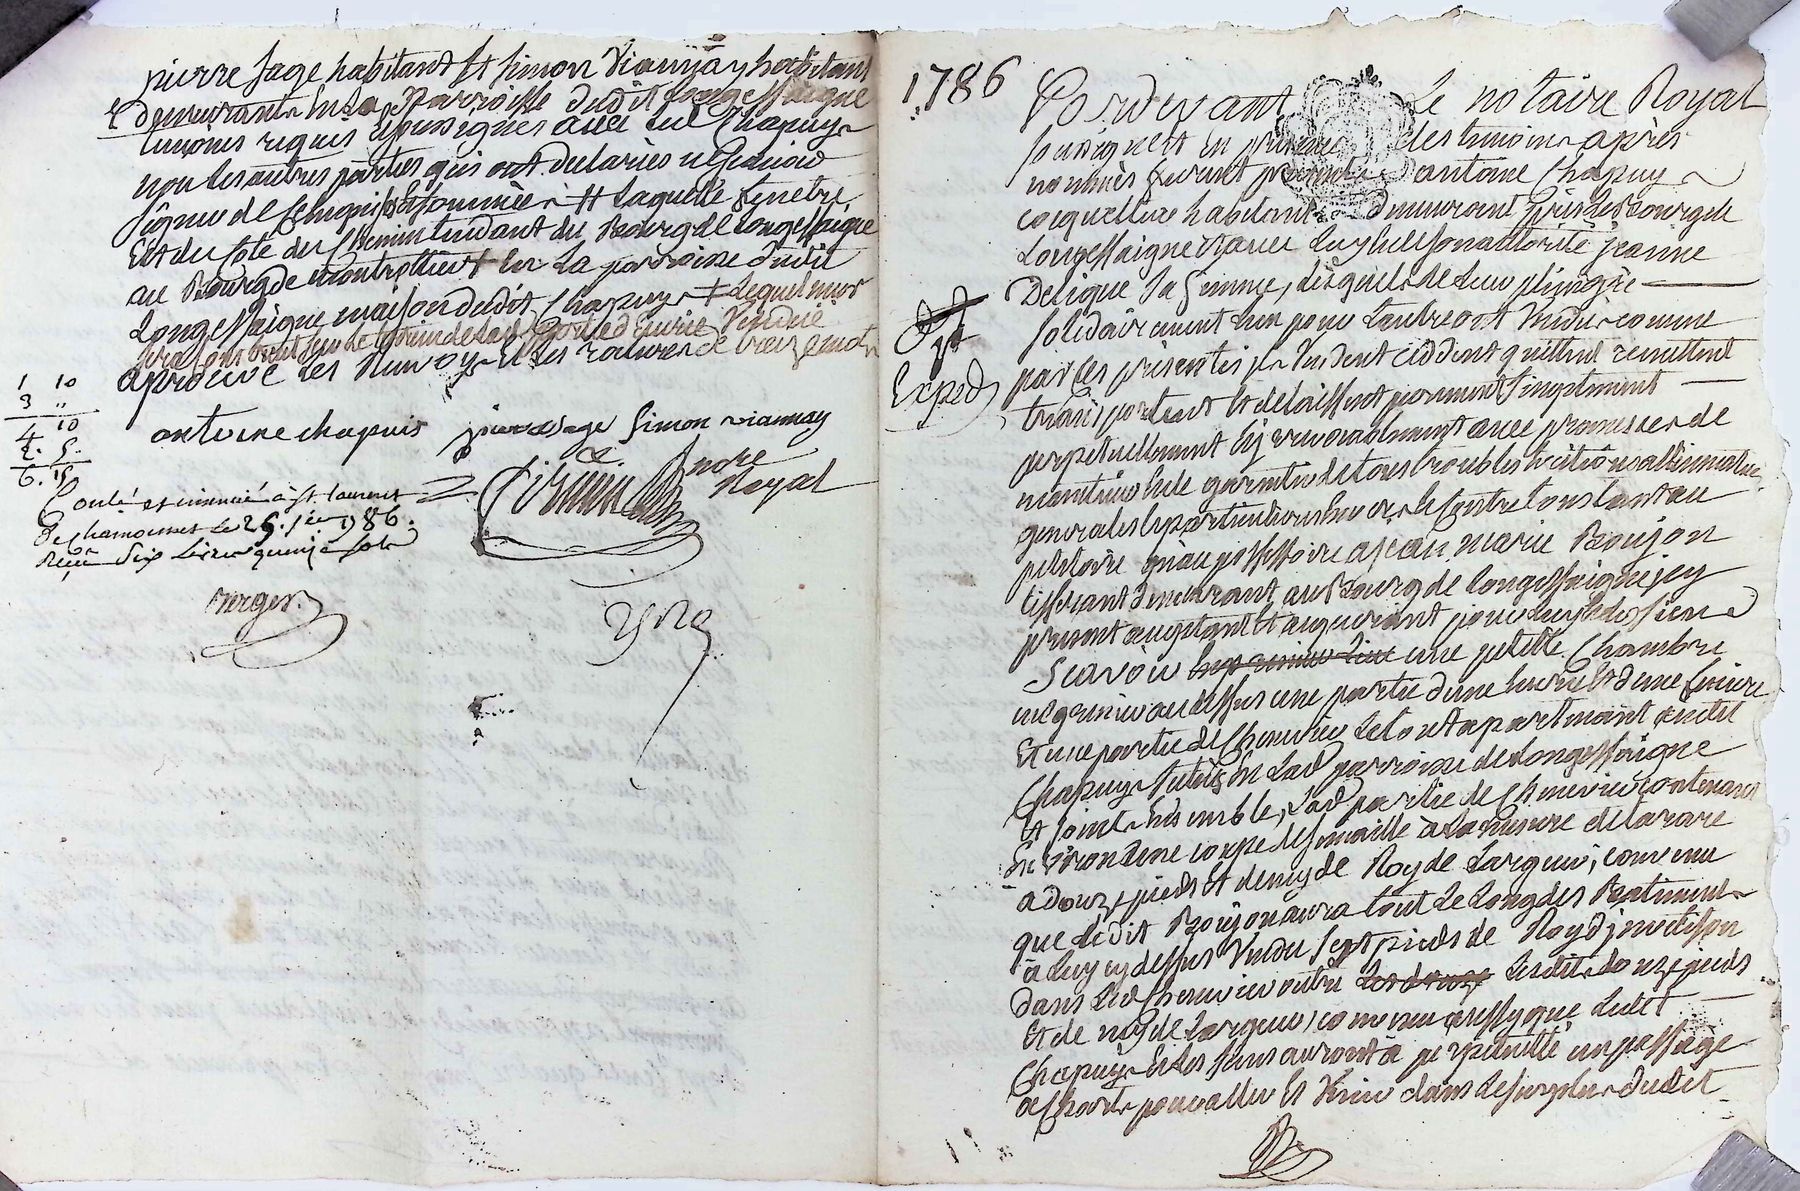 pierre sage habitant et simon viannay habitant
et demeurants en la parroisse dudit longessaigne
temoins requis et soussignés avec led Chapuy
non les autres parties qui ont declarées ne sçavoir
signer de ce enquis et sommées # laquelle fenetre
est du coté du chemin tendant du Bourg de longessaigne
au Bourg de montrottier en la parroisse dudit
Longessaigne maison dudit Chapuy # lequel mur
aprouvé les renvoys et les ratures de treize mots
antoine chapuis pierre sage Simon viannay
nore
Royal
1 10
3 "
4 10
2. 5.
6. 15
Conlé et insinué à st laurent
de chamousset le 25. 1786.
Reçu Six Livres quinze sols
Berger
1786
Pardevant Le notaire Royal
soussigné et en presence des temoins après
nommés furent presents antoine Chapuy
habitant demeurant Bourg de
Longessaigne et avec luy de son autorité jeanne
sa femme, lesquels de leur plein gré
solidairement l'un pour l'autre ont vendu comme
par ces presentes ils vendent cedent quittent remettent
transportent et delaissent purement simplement
perpetuellement et irrevocablement avec promesse de
maintenir et de garentir de tous troubles evictions
generales et particulieres envers et contre tous tant au
petitoire qu'au possessoire a jean marie Boujon
tisserant demeurant au Bourg de longessaigne icy
present acceptant et acquerant pour luy et les siens
Scavoir une petitte Chambre
un grenier au dessus une partie d'une
et une partie de Chenevier le tout apartenant audit
Chapuy situés en lad parroisse de Longessaigne
et joints ensemble, lad partie de Chenevier contenant
environ une coupe semaille à la mesure de tarare
a douze pieds et demy de Roy de largeur, convenu
que ledit Boujon aura tout le long des Batiments
à luy cy dessus vendu sept pieds de Roy
dans led Chenevier outre lesdits douze pieds
et de my de largeur, convenu aussy que ledit
Chapuy et les siens auront à perpetuitté un passage
pour aller et venir dans le surplus dudit
Exped